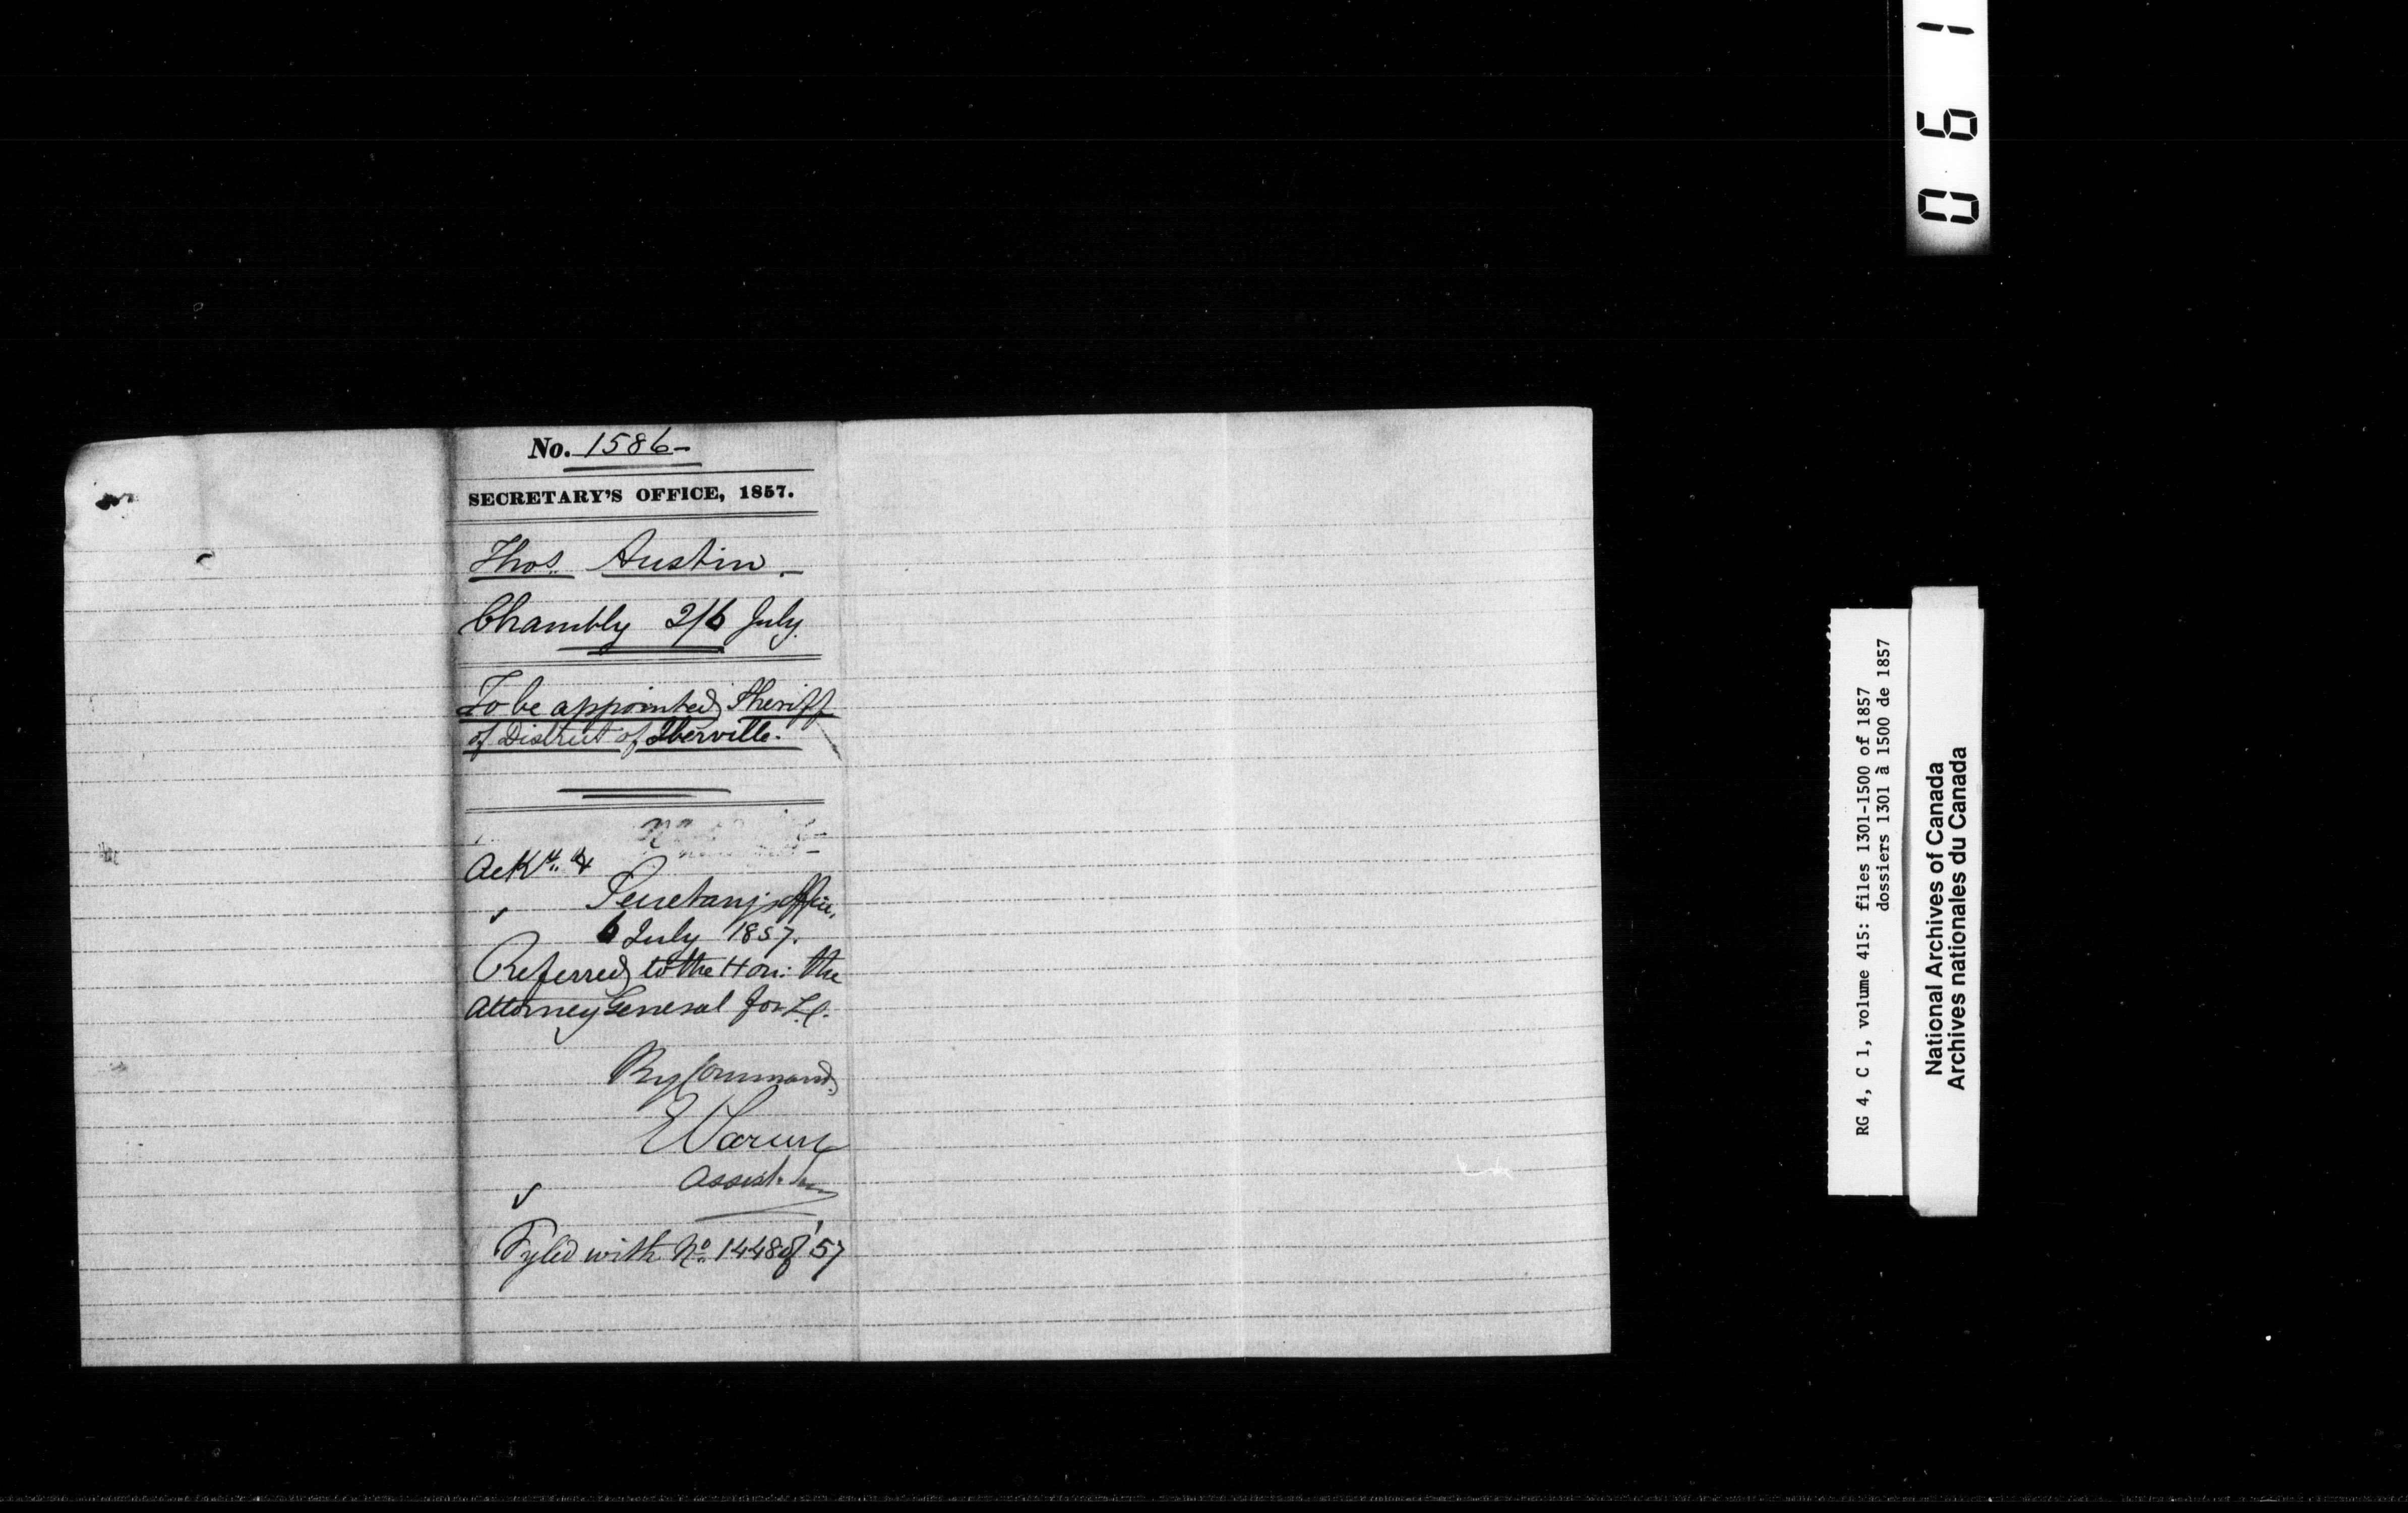 No. 1586-
SECRETARY'S OFFICE, 1857.
Thos. Austin.
Chambly 2/6 July.
To be appointed Sheriff
of District of Iberville.
Ackd. &
Secretary's Office,
6 July 1857.
Referred to the Hon: the
Attorney General for L.C.
By Command,
Assist.
Fyled with No. 1448 of '57
061
RG 4, C 1, volume 415: files 1301-1500 of 1857
dossiers 1301 à 1500 de 1857
National Archives of Canada
Archives nationales du Canada